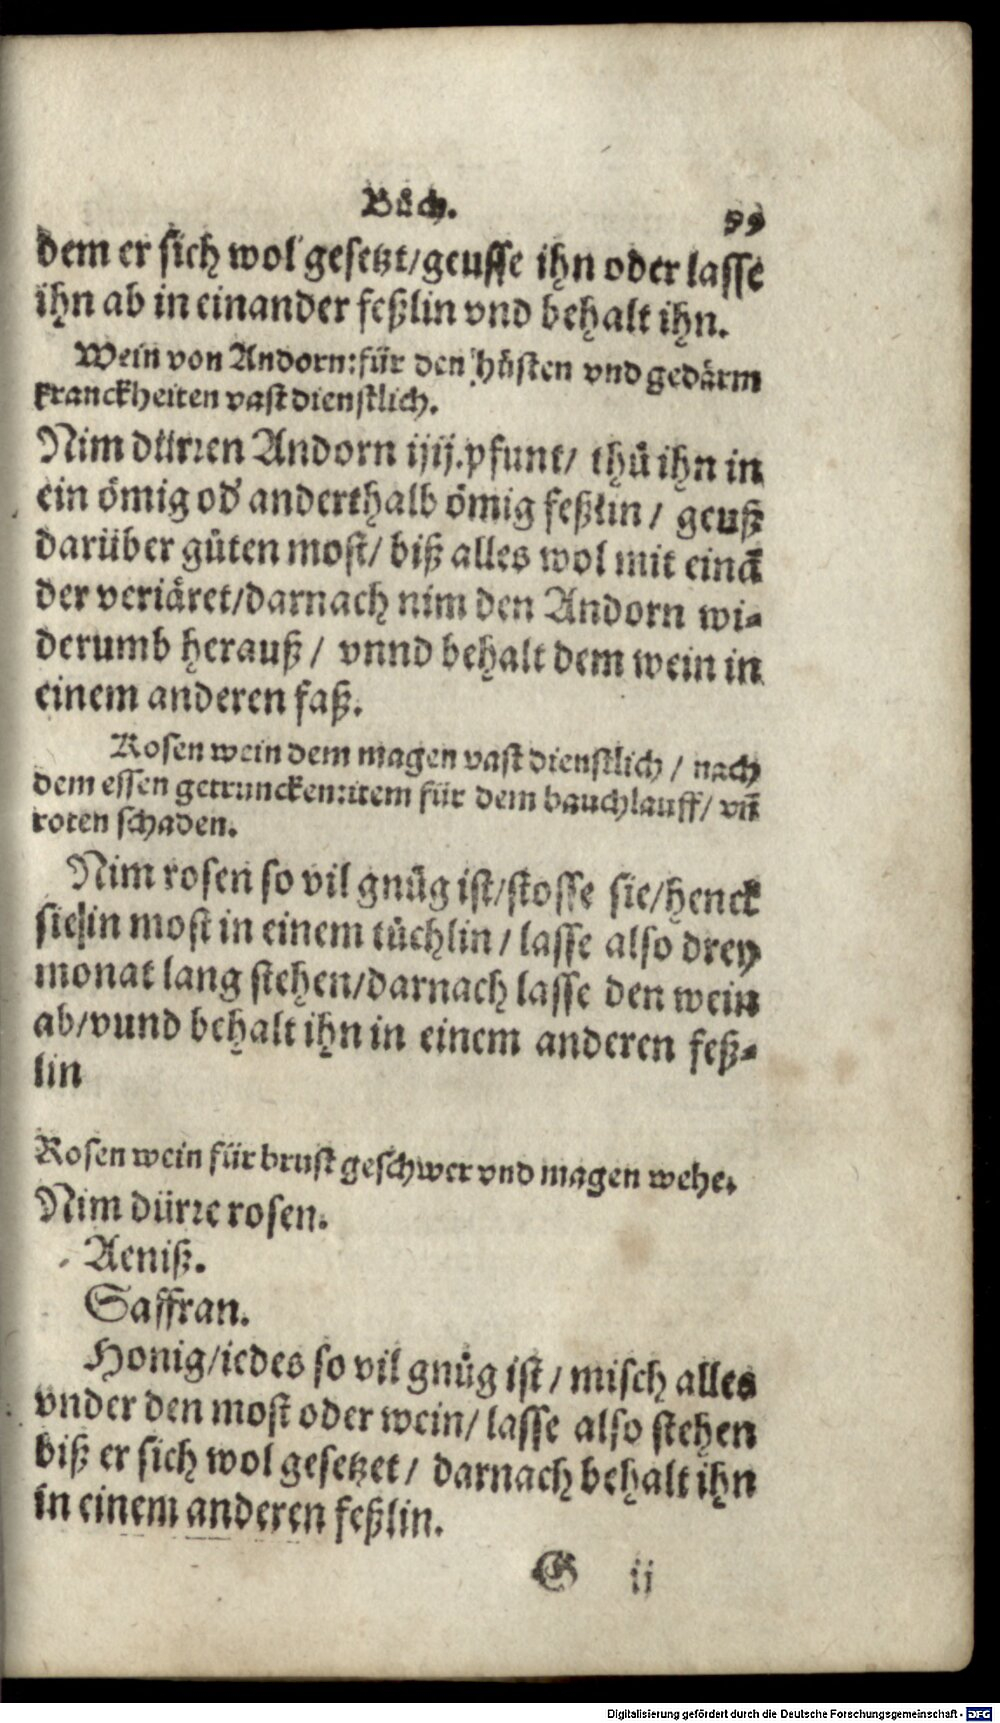 Bůch. 99
dem er sich wol gesetzt/geusse ihn oder lasse
ihn ab in einander feßlin vnd behalt ihn.
Wein von Andorn: für den hůsten vnd gedärm
kranckheiten vast dienstlich.
Nim dürren Andorn iiij. pfunt/ thů ihn in
ein ömig od' anderthalb ömig feßlin/ geuß
darüber gůten most/ biß alles wol mit einā
der veriäret/darnach nim den Andorn wi-
derumb herauß/ vnnd behalt dem wein in
einem anderen faß.
Rosen wein dem magen vast dienstlich/ nach
dem essen getruncken: item für dem bauchlauff/ vñ
roten schaden.
Nim rosen so vil gnůg ist/stosse sie/henck
sie in most in einem tüchlin/ lasse also drey
monat lang stehen/darnach lasse den wein
ab/vund behalt ihn in einem anderen feß-
lin
Rosen wein für brust geschwer vnd magen wehe.
Nim dürre rosen.
Aeniß.
Saffran.
Honig/iedes so vil gnůg ist/ misch alles
vnder den most oder wein/ lasse also stehen
biß er sich wol gesetzet/ darnach behalt ihn
in einem anderen feßlin.
G ij
Digitalisierung gefördert durch die Deutsche Forschungsgemeinschaft - DFG